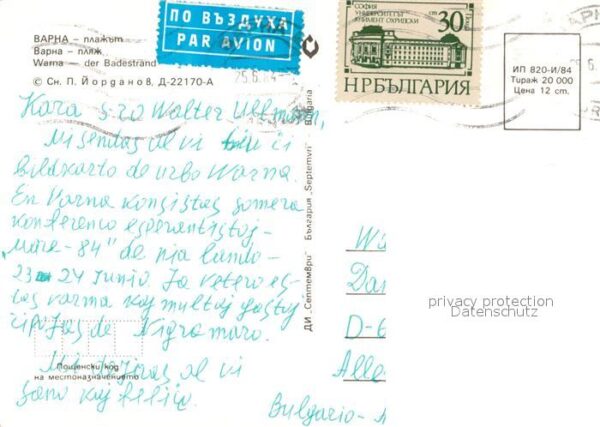 ПО ВЪЗДУХА
PAR AVION
СОФИЯ
УНИВЕРСИТЕТ
КЛИМЕНТ ОХРИДСКИ
30
НРБЪЛГАРИЯ
ВАРНА – плажът
Варна – пляж
Warna – der Badestrand
© Сн. П. Йорданов, Д-22170-А
ИП 820-И/84
Тираж 20 000
Цена 12 cm.
Kara s-ro Walter Ullmann,
Mi sendas al vi tiu ĉi
bildkarto de urbo Warna.
En Varna konsistas somera
konferenco esperantistoj
„Mare-84" de nia lando
23 24 Junio. La vetero es-
tas varma kaj multaj gastoj
de Nigra maro.
Mi deziras al vi
sano kaj feliĉo.
Bulgario-
Пощенски код
на местоназначението
ДИ „Септември" България „Septemvri" Bulgaria
D-6
Alle
privacy protection
Datenschutz